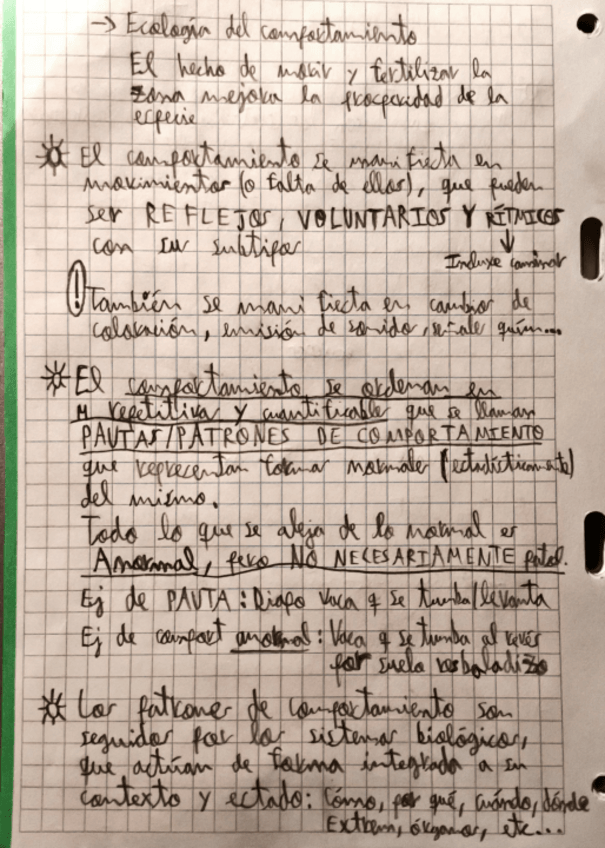 → Ecología del comportamiento
El hecho de morir y fertilizar la
zona mejora la prosperidad de la
especie
El comportamiento se manifiesta en
movimientos (o falta de ellos), que pueden
ser REFLEJOS, VOLUNTARIOS Y RÍTMICOS
con su subtipos
Incluye caminar
! También se manifiesta en cambios de
coloración, emisión de sonido, señales quím...
El comportamiento se ordenan en
repetitiva y cuantificable que se llaman
PAUTAS/PATRONES DE COMPORTAMIENTO
que representan formas normales (estadísticamente)
del mismo.
Todo lo que se aleja de lo normal es
Anormal, pero NO NECESARIAMENTE patol.
Ej de PAUTA: Diapo Vaca q se tumba/levanta
Ej de comport anormal: Vaca q se tumba al revés
por suelo resbaladizo
Los patrones de comportamiento son
seguidos por los sistemas biológicos,
que actúan de forma integrada a su
contexto y estado: Cómo, por qué, cuándo, dónde
Extrem, órganos, etc...